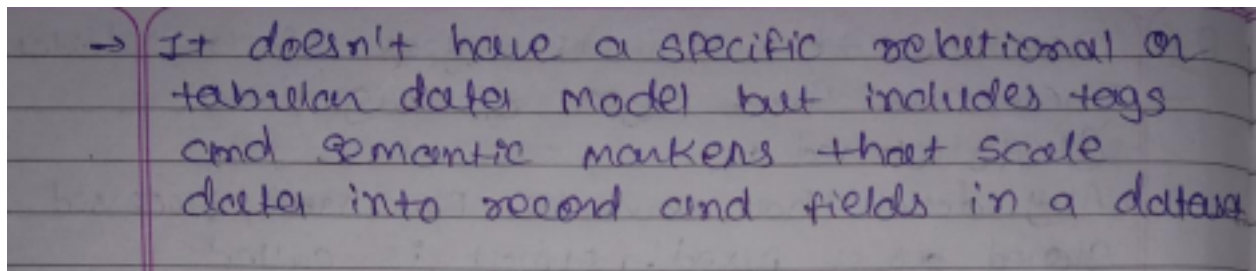 → It doesn't have a specific relational or
tabular data model but includes tags
and semantic markers that scale
data into record and fields in a dataset